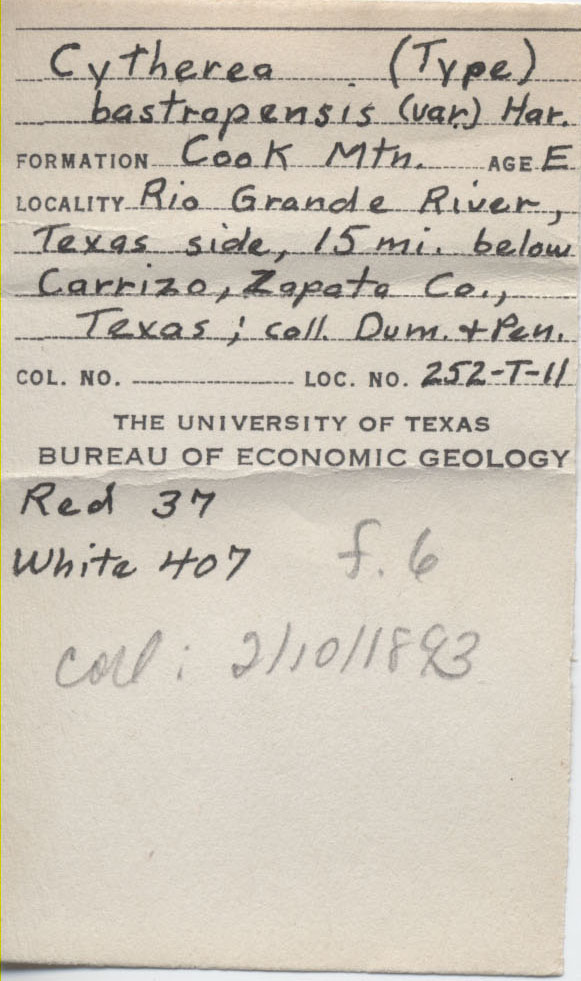 Cytherea (Type)
bastropensis (var.) Har.
FORMATION Cook Mtn. AGE E
LOCALITY Rio Grande River,
Texas side, 15 mi. below
Carrizo, Zapata Co.,
Texas; coll. Dum. + Pen.
COL. NO. LOC. NO. 252-T-11
THE UNIVERSITY OF TEXAS
BUREAU OF ECONOMIC GEOLOGY
Red 37
White 407 f. 6
coll: 2/10/1893